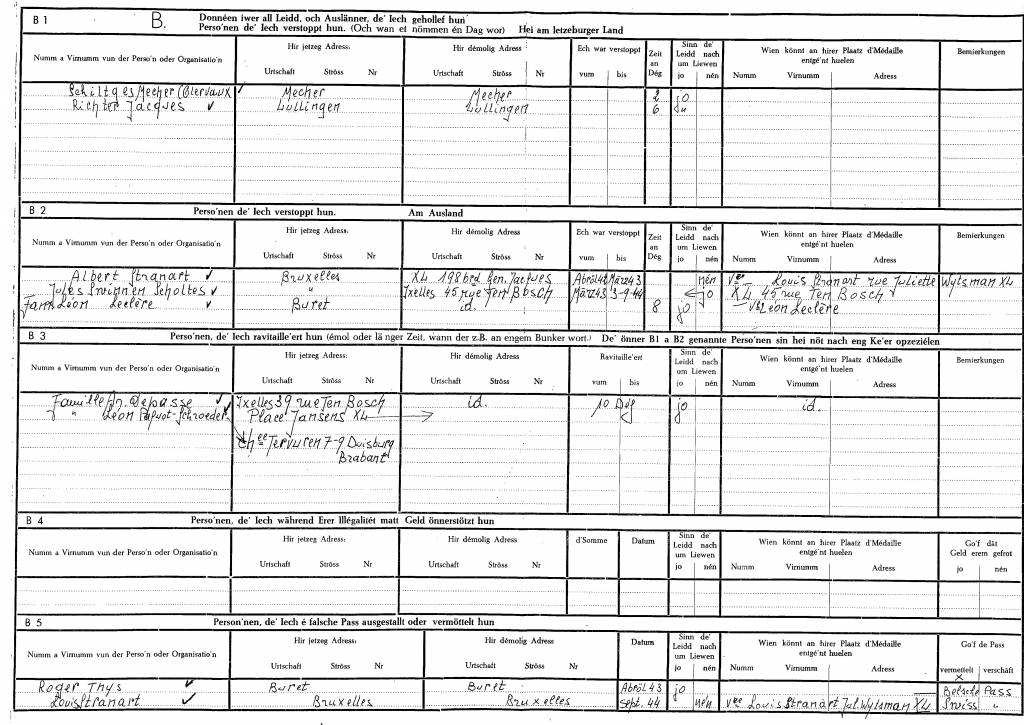 B 1 B. Donnéen iwer all Leidd, och Auslänner, de' Iech gehollef hun
Perso'nen de' Iech verstoppt hun. (Och wan et nömmen én Dag wor) Hei am letzeburger Land
Numm a Virnumm vun der Perso'n oder Organisatio'n
Hir jetzeg Adress: Urtschaft Ströss Nr
Hir démolig Adress Urtschaft Ströss Nr
Ech war verstoppt vum bis
Zeit an Dég
Sinn de' Leidd nach um Liewen jo nén
Wien könnt an hirer Plaatz d'Médaille entgé'nt huelen Numm Virnumm Adress
Bemierkungen
Schiltges Mecher (Clervaux) ✓ Mecher Mecher 2 jo
Richter Jacques ✓ Lullingen Lullingen 6 "
B 2 Perso'nen de' Iech verstoppt hun. Am Ausland
Numm a Virnumm vun der Perso'n oder Organisatio'n
Hir jetzeg Adress: Urtschaft Ströss Nr
Hir démolig Adress Urtschaft Ströss Nr
Ech war verstoppt vum bis
Zeit an Dég
Sinn de' Leidd nach um Liewen jo nén
Wien könnt an hirer Plaatz d'Médaille entgé'nt huelen Numm Virnumm Adress
Bemierkungen
Albert Stranart ✓ Bruxelles XL 198 brd. Gen. Jacques Abröl 42 März 43 nén Vve Louis Stranart rue Juliette Wytsman XL
Jules Scholtes ✓ " Ixelles 45 rue Ten Bosch März 43 3-9-44 jo XL 45 rue Ten Bosch
Fam. Léon Leclère ✓ Buret id. 8 jo Léon Leclère
B 3 Perso'nen, de' Iech ravitaille'ert hun (émol oder lä nger Zeit, wann der z.B. an engem Bunker wort.) De' önner B1 a B2 genannte Perso'nen sin hei nöt nach eng Ke'er opzeziélen
Numm a Virnumm vun der Perso'n oder Organisatio'n
Hir jetzeg Adress: Urtschaft Ströss Nr
Hir démolig Adress Urtschaft Ströss Nr
Ravitaille'ert vum bis
Sinn de' Leidd nach um Liewen jo nén
Wien könnt an hirer Plaatz d'Médaille entgé'nt huelen Numm Virnumm Adress
Bemierkungen
Famille Dr. Depasse ✓ Ixelles 39 rue Ten Bosch id. 10 Dég jo id.
" Léon Paquot-Schroeder Place Jansens XL
Chee Tervuren 7-9 Duisburg
Brabant
B 4 Perso'nen, de' Iech während Erer Illégalitét matt Geld önnerstötzt hun
Numm a Virnumm vun der Perso'n oder Organisatio'n
Hir jetzeg Adress: Urtschaft Ströss Nr
Hir démolig Adress Urtschaft Ströss Nr
d'Somme
Datum
Sinn de' Leidd nach um Liewen jo nén
Wien könnt an hirer Plaatz d'Médaille entgé'nt huelen Numm Virnumm Adress
Go'f dât Geld erem gefrot jo nén
B 5 Person'nen, de' Iech é falsche Pass ausgestallt oder vermöttelt hun
Numm a Virnumm vun der Perso'n oder Organisatio'n
Hir jetzeg Adress: Urtschaft Ströss Nr
Hir démolig Adress Urtschaft Ströss Nr
Datum
Sinn de' Leidd nach um Liewen jo nén
Wien könnt an hirer Plaatz d'Médaille entgé'nt huelen Numm Virnumm Adress
Go'f de Pass vermettelt verschäft
x
Roger Thys ✓ Buret Buret Abröl 43 jo Belsche Pass
Louis Stranart ✓ Bruxelles Bruxelles sept. 44 nén. Vve Louis Stranart Jul. Wytsman XL "